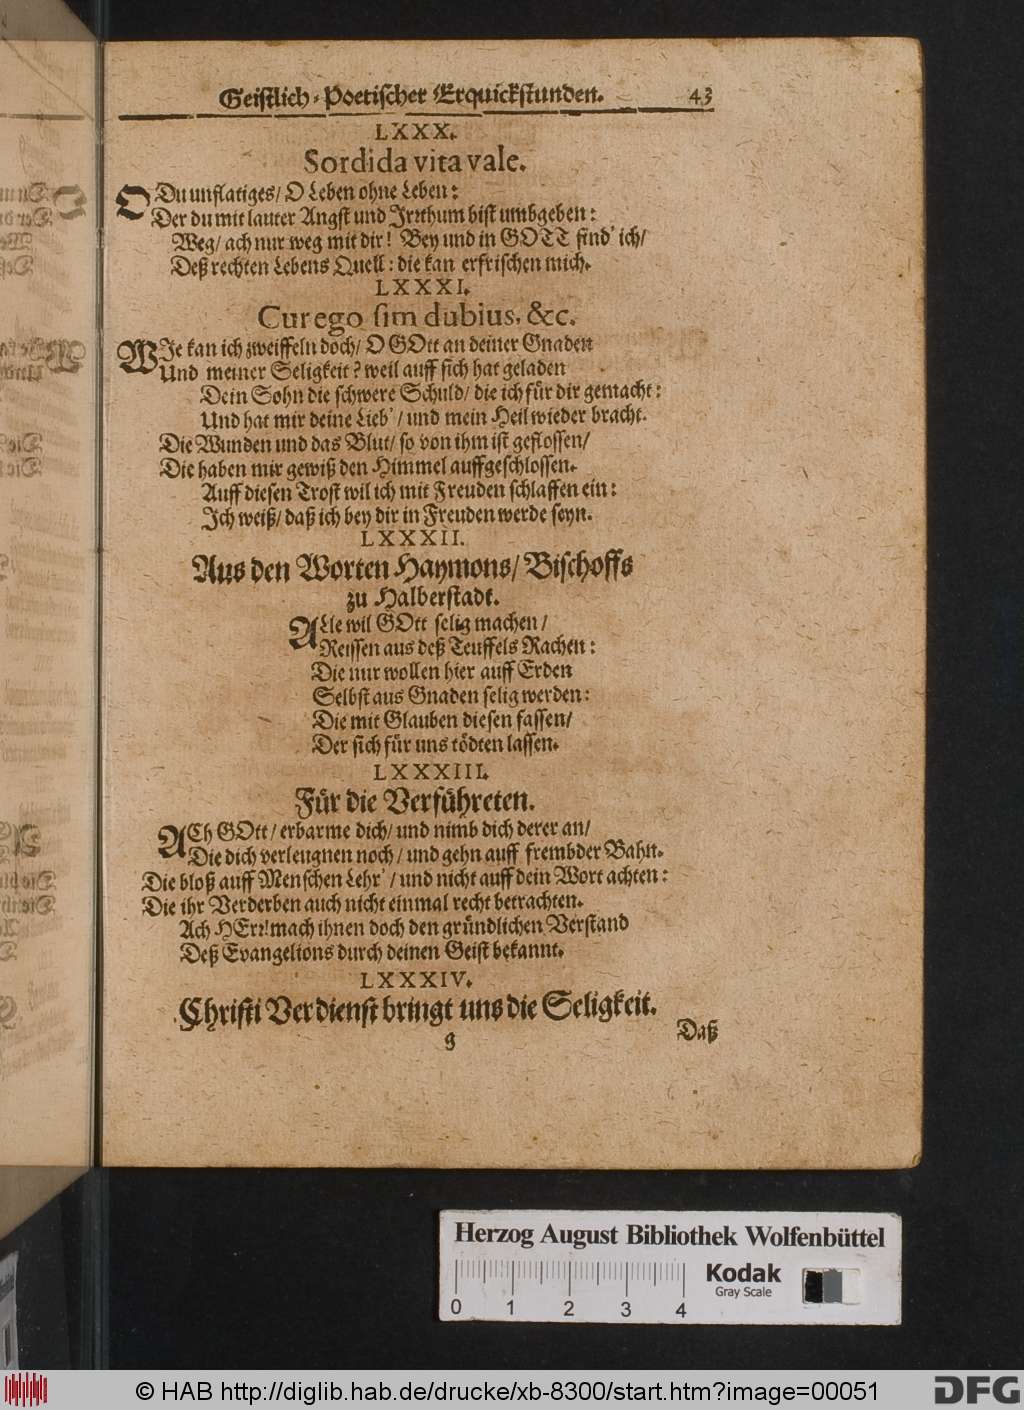 Geistlich-Poetischer Erquickstunden. 43
LXXX.
Sordida vita vale.
O Du unflätiges/ O Leben ohne Leben:
Der du mit lauter Angst und Irꝛthum bist umbgeben:
Weg/ ach nur weg mit dir! Bey und in GOTT find' ich/
Deß rechten Lebens Quell: die kan erfrischen mich.
LXXXI.
Cur ego sim dubius, &c.
WIe kan ich zweiffeln doch/ O GOtt an deiner Gnaden
Und meiner Seligkeit? weil auff sich hat geladen
Dein Sohn die schwere Schuld/ die ich für dir gemacht:
Und hat mir deine Lieb'/ und mein Heil wieder bracht.
Die Wunden und das Blut/ so von ihm ist geflossen/
Die haben mir gewiß den Himmel auffgeschlossen.
Auff diesen Trost wil ich mit Freuden schlaffen ein:
Ich weiß/ daß ich bey dir in Freuden werde seyn.
LXXXII.
Aus den Worten Haymons/ Bischoffs
zu Halberstadt.
ALle wil GOtt selig machen/
Reissen aus deß Teuffels Rachen:
Die nur wollen hier auff Erden
Selbst aus Gnaden selig werden:
Die mit Glauben diesen fassen/
Der sich für uns tödten lassen.
LXXXIII.
Für die Verführeten.
ACh GOtt/ erbarme dich/ und nimb dich derer an/
Die dich verleugnen noch/ und gehn auff frembder Bahn.
Die bloß auff Menschen Lehr'/ und nicht auff dein Wort achten:
Die ihr Verderben auch nicht einmal recht betrachten.
Ach HErꝛ! mach ihnen doch den gründlichen Verstand
Deß Evangelions durch deinen Geist bekannt.
LXXXIV.
Christi Verdienst bringt uns die Seligkeit.
g Daß
Herzog August Bibliothek Wolfenbüttel
Kodak
Gray Scale
0 1 2 3 4
© HAB http://diglib.hab.de/drucke/xb-8300/start.htm?image=00051
DFG